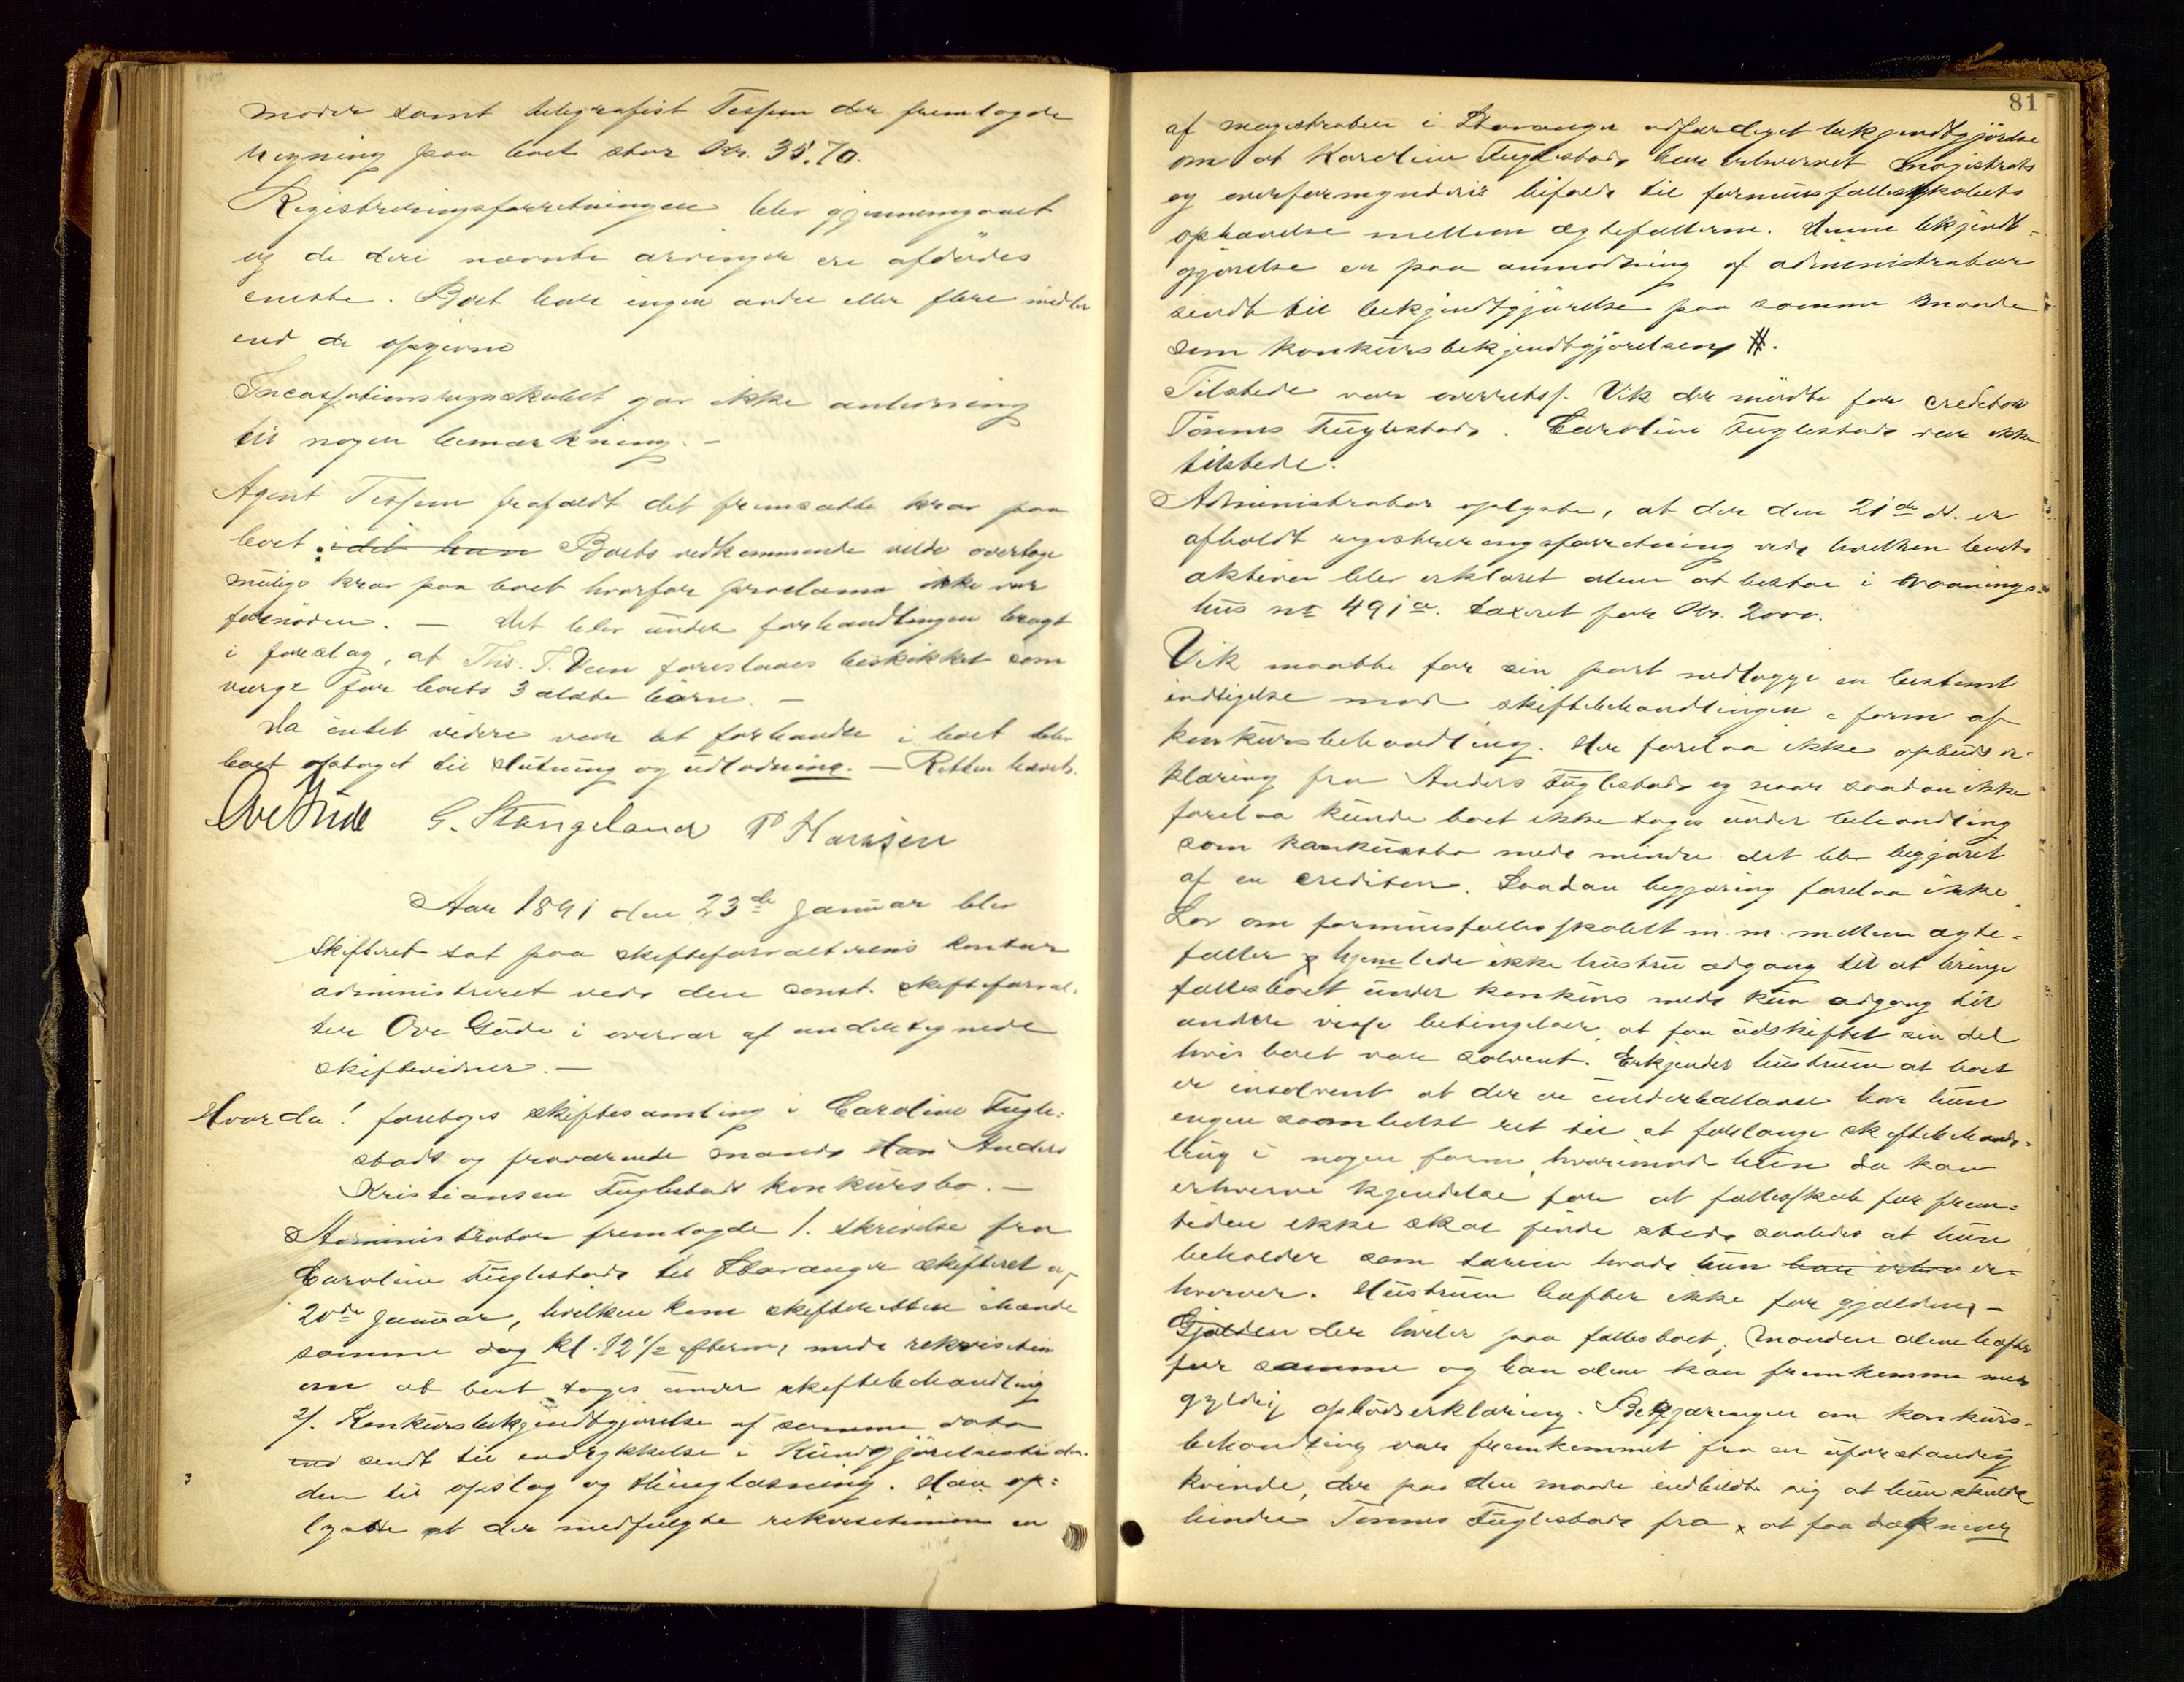 moder samt telegrafist Tessem der fremlagde
regning paa boet stor Kr. 35.70.
Registreringsforretningen blev gjennemgaaet
og de deri nævnte arvinger ere afdødes
eneste. Boet har ingen andre eller flere midler
end de opgivne
Incassationsregnskabet gav ikke anledning
til nogen bemærkning. –
Agent Tessem frafaldt det fremsatte krav paa
boet idet han Boets vedkommende vilde overtage
mulige krav paa boet hvorfor proclama ikke var
fornöden. – Det blev under forhandlingen bragt
i forslag, at Ths. T. Veen foreslaaes beskikket som
værge for boets 3 ældste börn. –
Da intet videre var at forhandle i boet blev
boet optaget til slutning og udlodning. – Retten hævet.
Ove Gude G. Stangeland P Hansen
Aar 1891 den 23de Januar blev
skifteret sat paa skifteforvalterens kontor
administreret ved den const. skifteforval-
ter Ove Gude i overvær af undertegnede
skiftevidner. –
Hvorda! foretoges skiftesamling i Caroline Fugle-
stads og fraværende mands Han Anders
Kristiansen Fuglestads konkursbo. –
Administrator fremlagde 1. skrivelse fra
Caroline Fuglestad til Stavanger skifteret af
20de Januar, hvilken kom skifteretten ihænde
samme dag kl. 12 1/2 efterm, med rekvisition
om at boet toges under skiftebehandling
2/. Konkursbekjendtgjørelse af samme dato
ind sendt til indrykkelse i Kundgjörelsestiden-
den til opslag og thinglæsning. Han op-
lyste at der medfulgte rekvisitionen en
81
af magistraten i Stavanger udfærdiget bekjendtgjörelse
om at Karoline Fuglestad har erhvervet magistrats
og overformynderis bifald til formuesfællesskabets
ophævelse mellem ægtefællerne. Denne bekjendt-
gjörelse er paa anmodning af administrator
sendt til bekjendtgjörelse paa samme maade
som konkursbekjendtgjörelsen #.
Tilstede var overretss. Vik der mödte for creditor
Tönnes Fuglestad. Caroline Fuglestad var ikke
tilstede.
Administrator oplyste, at der den 21de ds. er
afholdt registreringsforretning ved hvilken boets
aktiver blev erklæret alene at bestaa i vaanings-
hus no 491a. taxeret for Kr. 2000.
Vik maatte for sin part nedlægge en bestemt
indsigelse mod skiftebehandlingen i form af
konkursbehandling. Her forelaa ikke opbudser-
klæring fra Anders Fuglestad og naar saadan ikke
forelaa kunde boet ikke tages under behandling
som konkursbo med mindre det blev begjæret
af en creditor. Saadan begjæring forelaa ikke.
Lov om formuesfællesskabet m. m. mellem ægte-
fæller hjemlede ikke hustru adgang til at bringe
fællesboet under konkurs med kun adgang til
under visse betingelser, at faa udskiftet sin del
hvis boet var solvent. Erkjender hustruen at boet
er insolvent at der er underballance har hun
engen somhelst ret til at forlange skiftebehand-
ling i nogen form, hvorimod hun da kan
erhverve kjendelse for at fællesskab for frem-
tiden ikke skal finde sted saaledes at hun
beholder som særeie hvad hun han erhve er-
hverver. Hustruen hæfter ikke for gjælden, –
Gjælden der hviler paa fællesboet, manden alene hæfter
for samme og han alene kan fremkomme med
gyldig opbudserklæring. Begjæringen om konkurs-
behandling var fremkommet fra en uforstandig
kvinde, der paa den maade indbildte sig at hun skulde
hindre Tönnes Fuglestad fra at faa dækning